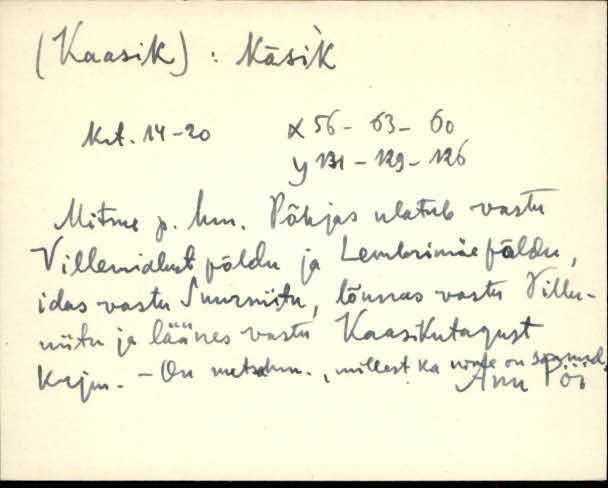 (Kaasik) : Kāsìk
Krt. 14-20 x 56 - 63 - 60
y 131 - 129 - 126
Mitme p. hm. Põhjas ulatub vastu
põldu ja Lembrimäe põldu,
idas vastu Suurniitu, lõunas vastu Villu-
niitu ja läänes vastu Kaasikutagust
Krjm. - On metsahm., millest ka nime on saanud.